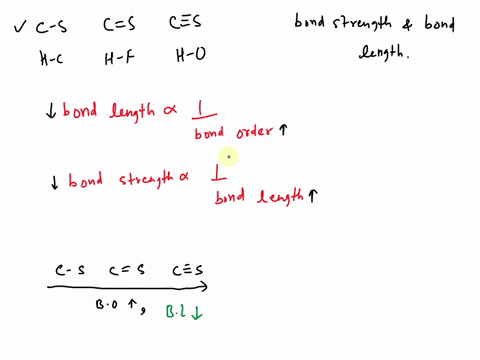 ✓ C-S C=S C≡S
H-C H-F H-O
bond strength & bond
length.
↓ bond length ∝ 1
bond order ↑
↓ bond strength ∝ 1
bond length ↑
C-S C=S C≡S
B.O ↑, B.L ↓